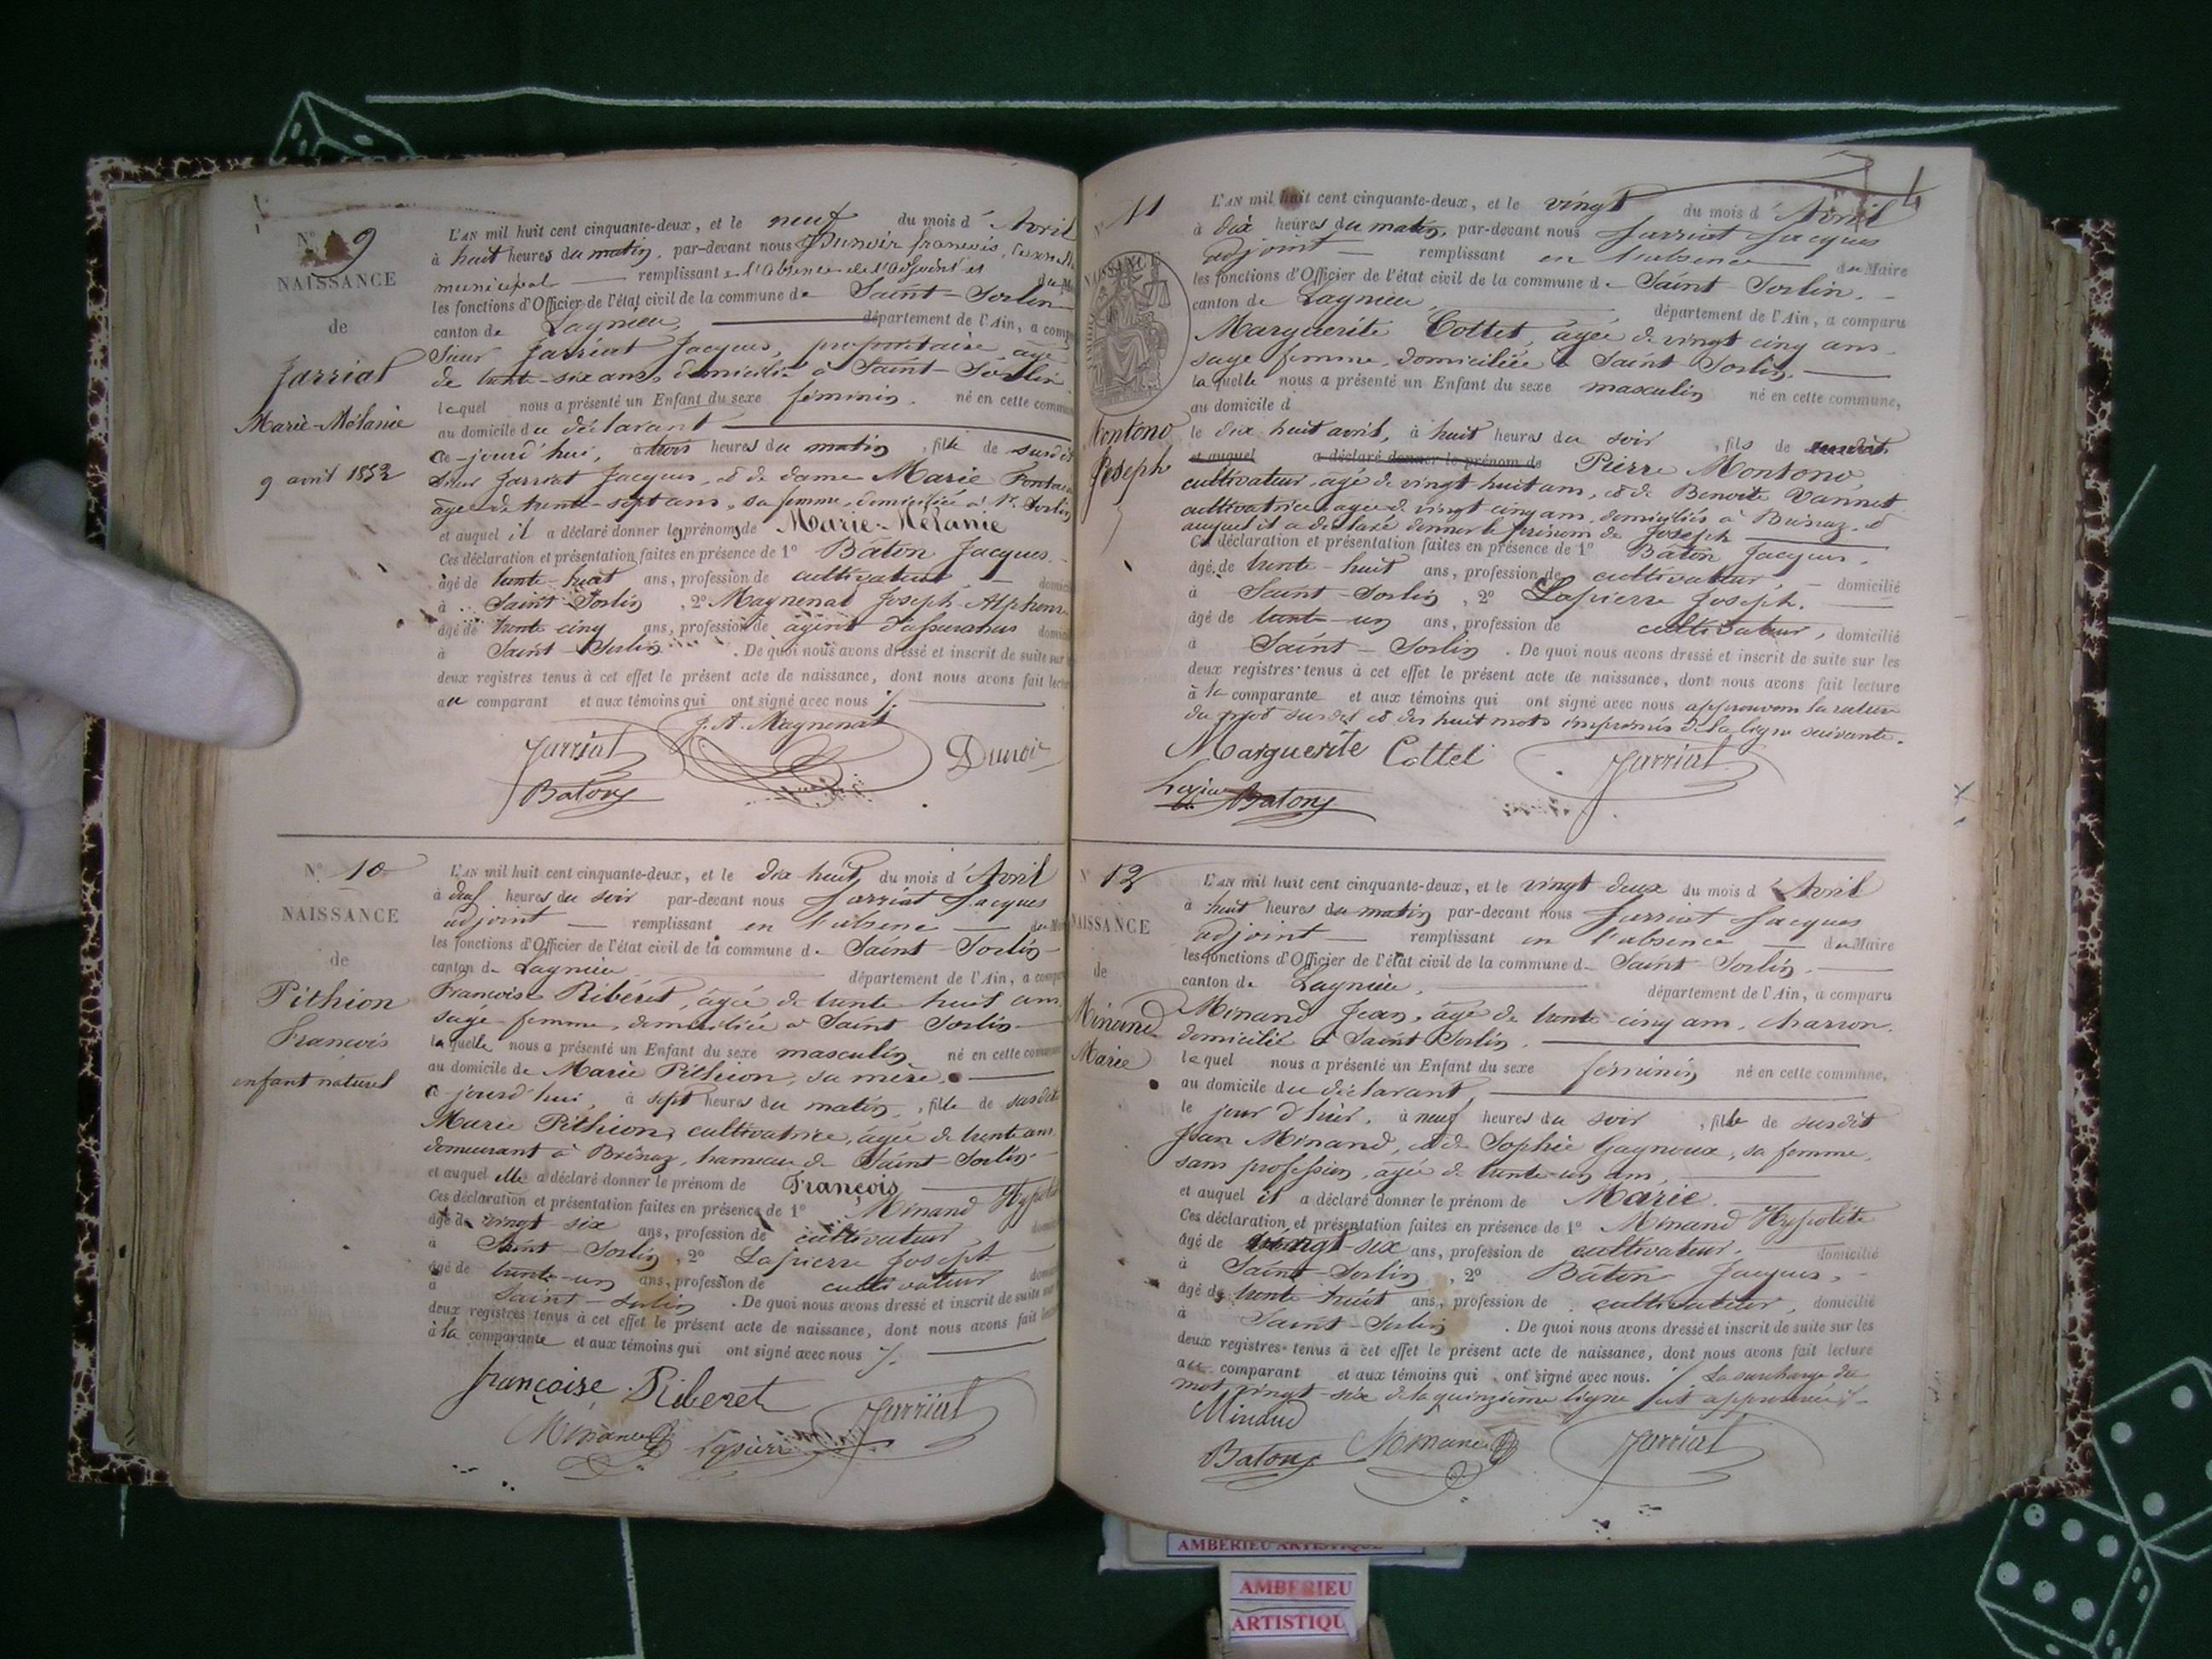 N° 9
NAISSANCE
de
Jarriat
Marie-Mélanie
9 avril 1852
L'AN mil huit cent cinquante-deux, et le neuf du mois d'Avril
à huit heures du matin, par-devant nous Dunoir françois,
municipal — remplissant en l'absence de l'adjoint et du
les fonctions d'Officier de l'état civil de la commune de Saint-Sorlin
canton de Lagnieu, département de l'Ain, a comp
Sieur Jarriat Jacques, propriétaire, âgé
de trente-six ans, domicilié à Saint-Sorlin
lequel nous a présenté un Enfant du sexe féminin, né en cette commun
au domicile du déclarant
ce-jourd'hui, à trois heures du matin, fille de susdit
sieur Jarriat Jacques, et de dame Marie
âgée de trente-sept ans, sa femme, domiciliée à St Sorlin
et auquel il a déclaré donner les prénoms de Marie-Mélanie
Ces déclaration et présentation faites en présence de 1° Bâton Jacques
âgé de trente-huit ans, profession de cultivateur, domici
à Saint-Sorlin, 2° Magnenat Joseph-Alphonse
âgé de trente cinq ans, profession de agent d'assurances domici
à Saint-Sorlin. De quoi nous avons dressé et inscrit de suite sur
deux registres tenus à cet effet le présent acte de naissance, dont nous avons fait lectu
au comparant et aux témoins qui ont signé avec nous
J. A. Magnenat
Jarriat
Dunoir
Baton
N° 10
NAISSANCE
de
Pithion
François
enfant naturel
L'AN mil huit cent cinquante-deux, et le dix huit du mois d'Avril
à heures du soir par-devant nous Jarriat Jacques
adjoint — remplissant en l'absence — du
les fonctions d'Officier de l'état civil de la commune de Saint-Sorlin
canton de Lagnieu département de l'Ain, a compa
Françoise Ribéret, âgée de trente huit ans
sage-femme, domiciliée à Saint Sorlin
laquelle nous a présenté un Enfant du sexe masculin né en cette commun
au domicile de Marie Pithion, sa mère,
ce jourd'hui, à sept heures du matin, fils de susdite
Marie Pithion, cultivatrice, âgée de trente ans
demeurant à Brénaz, hameau de Saint-Sorlin
et auquel elle a déclaré donner le prénom de François
Ces déclaration et présentation faites en présence de 1° Minand Hypolite
âgé de vingt-six ans, profession de cultivateur,
à Saint-Sorlin, 2° Lapierre Joseph
âgé de trente-un ans, profession de cultivateur
à Saint-Sorlin. De quoi nous avons dressé et inscrit de suite sur
deux registres tenus à cet effet le présent acte de naissance, dont nous avons fait lecture
à la comparante et aux témoins qui ont signé avec nous
françoise Riberet
Minand Lapierre Jarriat
N° 11
NAISSANCE
Montono
Joseph
L'AN mil huit cent cinquante-deux, et le vingt du mois d'Avril
à dix heures du matin, par-devant nous Jarriat Jacques
adjoint — remplissant en l'absence — du Maire
les fonctions d'Officier de l'état civil de la commune de Saint-Sorlin.
canton de Lagnieu, département de l'Ain, a comparu
Marguerite Cottet, âgée de vingt cinq ans
sage femme, domiciliée à Saint Sorlin,
laquelle nous a présenté un Enfant du sexe masculin né en cette commune,
au domicile d
le dix huit avril, à huit heures du soir, fils de susdit
et auquel a déclaré donner le prénom de Pierre Montono,
cultivateur, âgé de vingt-huit ans, et de Benoite Vannet
cultivatrice, âgée de vingt-cinq ans, domiciliés à Brénaz, et
auquel il a déclaré donner le prénom de Joseph
Ces déclaration et présentation faites en présence de 1° Bâton Jacques,
âgé de trente-huit ans, profession de cultivateur, — domicilié
à Saint-Sorlin, 2° Lapierre Joseph.
âgé de trente-un ans, profession de cultivateur, domicilié
à Saint-Sorlin. De quoi nous avons dressé et inscrit de suite sur les
deux registres tenus à cet effet le présent acte de naissance, dont nous avons fait lecture
à la comparante et aux témoins qui ont signé avec nous approuvons la rature
du mot susdit et des huit mots imprimés de la ligne suivante.
Marguerite Cottet Jarriat
Baton
N° 12
NAISSANCE
de
Minand
Marie
L'AN mil huit cent cinquante-deux, et le vingt deux du mois d'Avril
à huit heures du matin par-devant nous Jarriat Jacques
adjoint — remplissant en l'absence — du Maire
les fonctions d'Officier de l'état civil de la commune de Saint-Sorlin.
canton de Lagnieu, département de l'Ain, a comparu
Minand Jean, âgé de trente-cinq ans, charron,
domicilié à Saint Sorlin,
lequel nous a présenté un Enfant du sexe féminin né en cette commune,
au domicile du déclarant,
le jour d'hier, à neuf heures du soir, fille de susdit
Jean Minand, et de Sophie Gagneux, sa femme,
sans profession, âgée de trente-un ans,
et auquel il a déclaré donner le prénom de Marie.
Ces déclaration et présentation faites en présence de 1° Minand Hypolite
âgé de vingt-six ans, profession de cultivateur, domicilié
à Saint-Sorlin, 2° Bâton Jacques,
âgé de trente-huit ans, profession de cultivateur, domicilié
à Saint-Sorlin. De quoi nous avons dressé et inscrit de suite sur les
deux registres tenus à cet effet le présent acte de naissance, dont nous avons fait lecture
au comparant et aux témoins qui ont signé avec nous. La surcharge du
mot vingt-six de la quinzième ligne soit approuvée
Minand
Baton Minand Jarriat
AMBERIEU ARTISTIQUE
AMBERIEU
ARTISTIQU